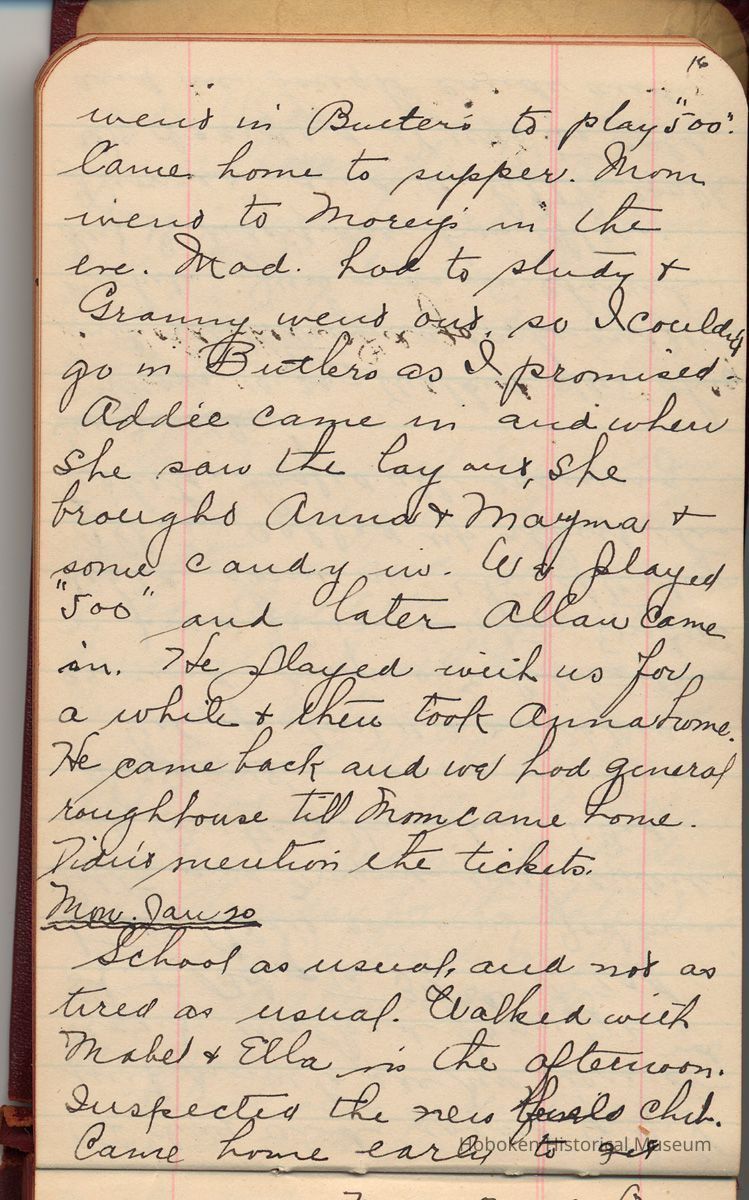 16
went in Butler's to play "500".
Came home to supper. Mom
went to Morey's in the
eve. Mad. had to study &
Granny went out, so I couldn't
go in Butlers as I promised.
Addie came in and when
she saw the lay out, she
brought Anna & Mayma &
some candy in. We played
"500" and later Allan came
in. He played with us for
a while & then took Anna home.
He came back and we had general
roughhouse till Mom came home.
Didn't mention the tickets.
Mon. Jan 20
School as usual, and not as
tired as usual. Walked with
Mabel & Ella in the afternoon.
Inspected the new club.
Came home early to get
Hoboken Historical Museum